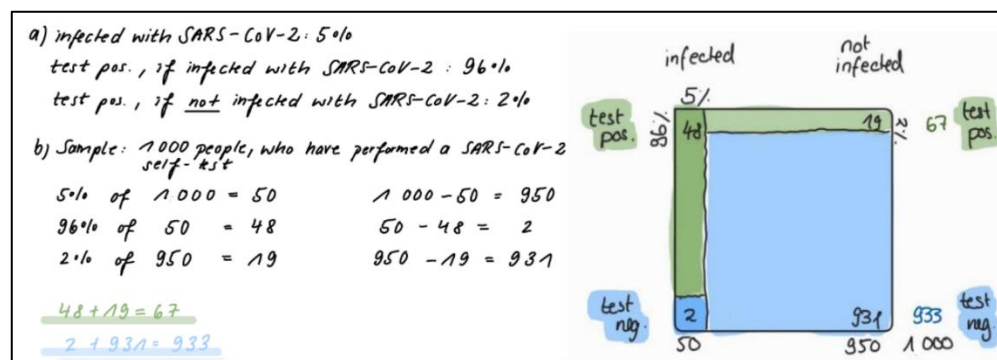 a) infected with SARS-CoV-2: 5%
test pos., if infected with SARS-CoV-2: 96%
test pos., if not infected with SARS-CoV-2: 2%
b) Sample: 1 000 people, who have performed a SARS-CoV-2
self-test
5% of 1 000 = 50
1 000 - 50 = 950
96% of 50 = 48
50 - 48 = 2
2% of 950 = 19
950 - 19 = 931
48 + 19 = 67
2 + 931 = 933
infected
not
infected
5%
test
pos.
96%
48
19
2%
67
test
pos.
test
neg.
2
931
933
test
neg.
50
950
1 000